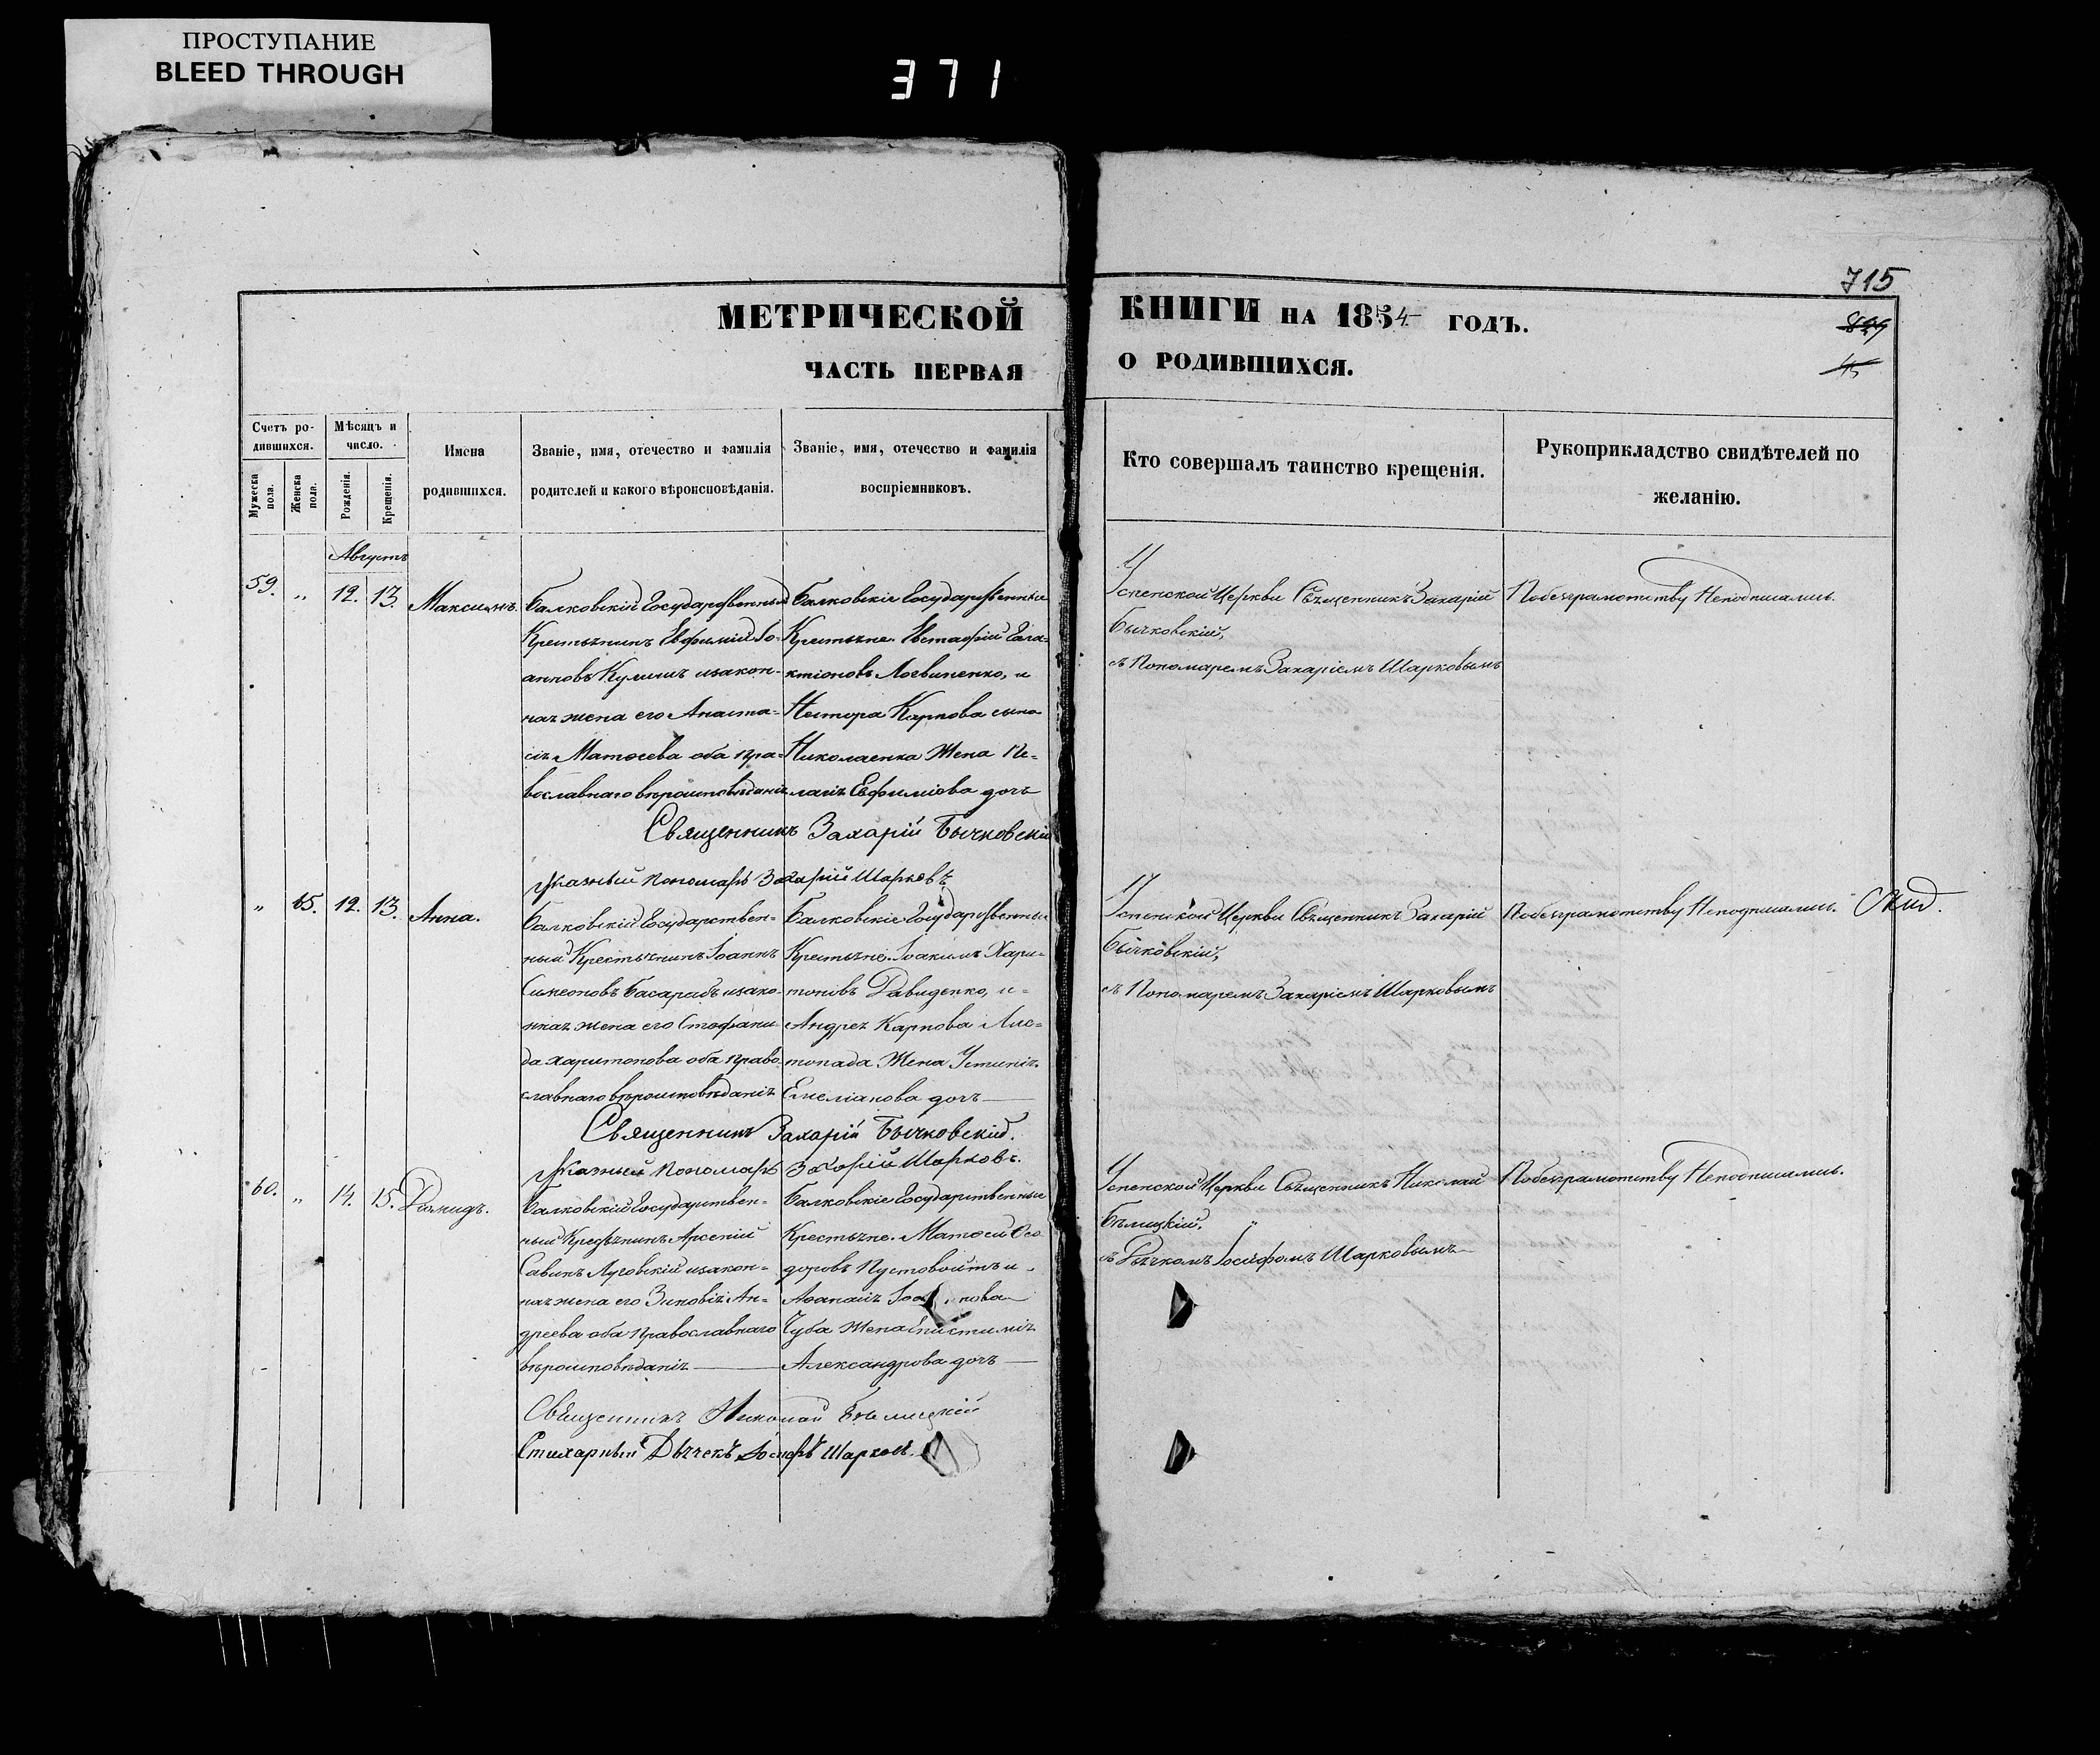 ПРОСТУПАНИЕ
BLEED THROUGH
371
715
МЕТРИЧЕСКОЙ КНИГИ НА 1854 ГОДЪ.
ЧАСТЬ ПЕРВАЯ О РОДИВШИХСЯ.
Счетъ ро-
дившихся.
Мужеска пола.
Женска пола.
Мѣсяцъ и
число.
Рожденія.
Крещенія.
Имена
родившихся.
Званіе, имя, отечество и фамилія
родителей и какого вѣроисповѣданія.
Званіе, имя, отечество и фамилія
воспріемниковъ.
Кто совершалъ таинство крещенія.
Рукоприкладство свидѣтелей по
желанію.
Августъ
59. „ 12. 13. Максимъ.
Балковскій Государственный
Крестьянинъ Евфимій Іо-
анновъ Кулишъ изакон-
ная жена его Анаста-
сія Матѳеева оба пра-
вославнаго вѣроисповѣданія
Балковскіе Государственные
Крестьяне. Евстафій Гала-
ктіоновъ Логвиненко, и
Нестора Карпова сына
Николаенка Жена Пе-
лагія Евфиміова дочь
Успенской Церкви Священникъ Захарій
Бычковскій,
съ Пономаремъ Захаріемъ Шарковымъ
Побезграмотству Неподписались.
Священникъ Захарій Бычковскій
Указный пономарь Захарій Шарковъ
„ 65. 12. 13. Анна.
Балковскій Государствен-
ный Крестьянинъ Іоаннъ
Симеоновъ Басарабъ изако-
нная жена его Стефани-
да Харитонова оба право
славнаго вѣроисповѣданія
Балковскіе Государственные
Крестьяне. Іоакимъ Хари-
тоновъ Давиденко, и
Андрея Карпова Лис-
топада Жена Устинія
Емеліанова дочь
Успенской Церкви Священникъ Захарій
Бычковскій,
съ Пономаремъ Захаріемъ Шарковымъ
Побезграмотству Неподписались.
Священникъ Захарій Бычковскій.
Указный Пономарь Захарій Шарковъ.
60. „ 14. 15. Діомидъ.
Балковскій Государствен-
ный Крестьянинъ Арсеній
Савинъ Луговскій изакон-
ная жена его Зиновія Ан-
дреева оба Православнаго
вѣроисповѣданія
Балковскіе Государственные
Крестьяне. Матѳей Ѳео
доровъ Пустовойтъ и
Аѳанасія
Чуба Жена Епистимія
Александрова дочь
Успенской Церкви Священникъ Николай
Бѣлицкій,
съ Дьячкомъ Іосифомъ Шарковымъ
Побезграмотству Неподписались.
Священникъ Николай Бѣлицкій
Стихарный Дьячекъ Іосифъ Шарковъ.